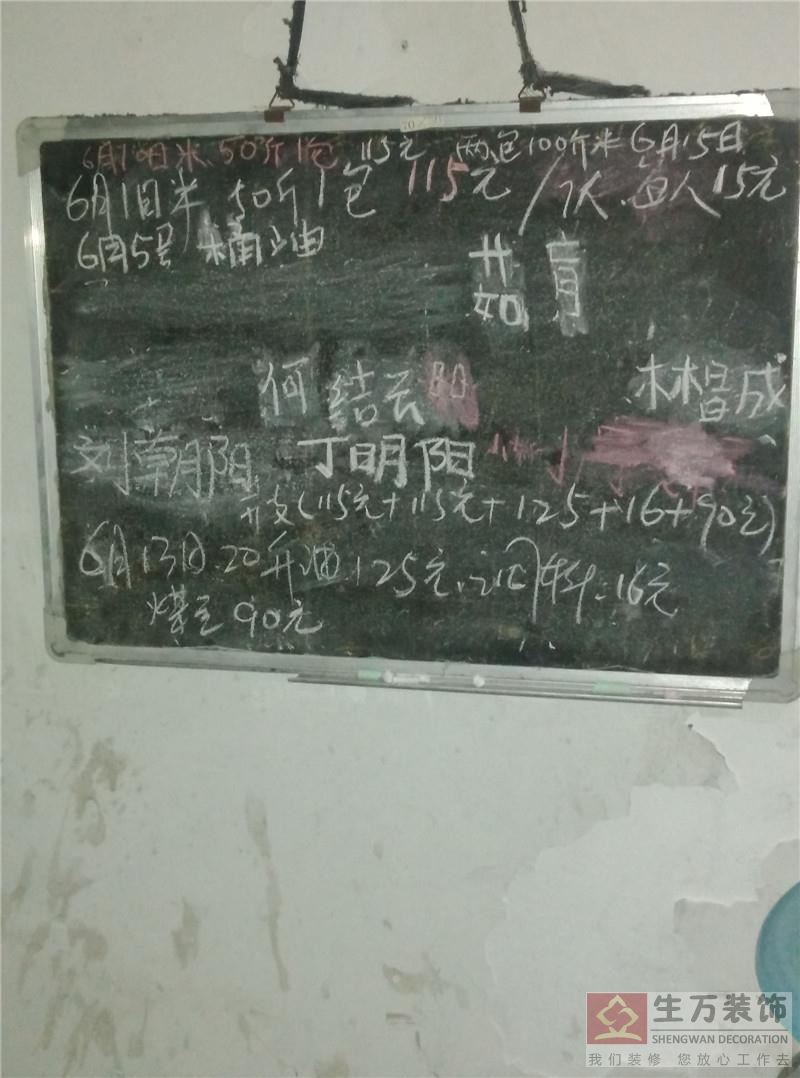 6月10日米 50斤1包 115元 两包100斤米 6月15日
6月1日米 50斤1包 115元 /1人 每人15元
6月5号 桶油
何结云阳 林昌成
刘朝阳 丁明阳
开支(115元+115元+125+16+90元)
6月13日 20升油 125元 料:16元
90元
生万装饰
SHENGWAN DECORATION
我们装修 您放心工作去